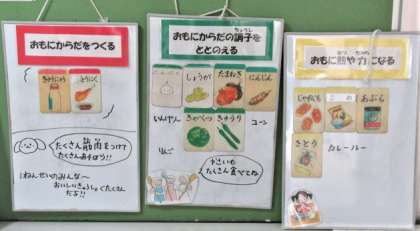 おもにからだをつくる
ぎゅうにゅう
とりにく
たくさん筋肉をつけて
たくさんあそぼう!!
1ねんせいのみんな〜
おいしいきゅうしょくたくさん
だよ!!
おもにからだの調子を
ちょうし
ととのえる
にんにく
しょうが
たまねぎ
にんじん
いんげん
きゃべつ
きゅうり
コーン
りんご
やさいも
たくさん食べてね
おもに熱や力になる
ねつ
ちから
じゃがいも
こめ
あぶら
さとう
カレールー